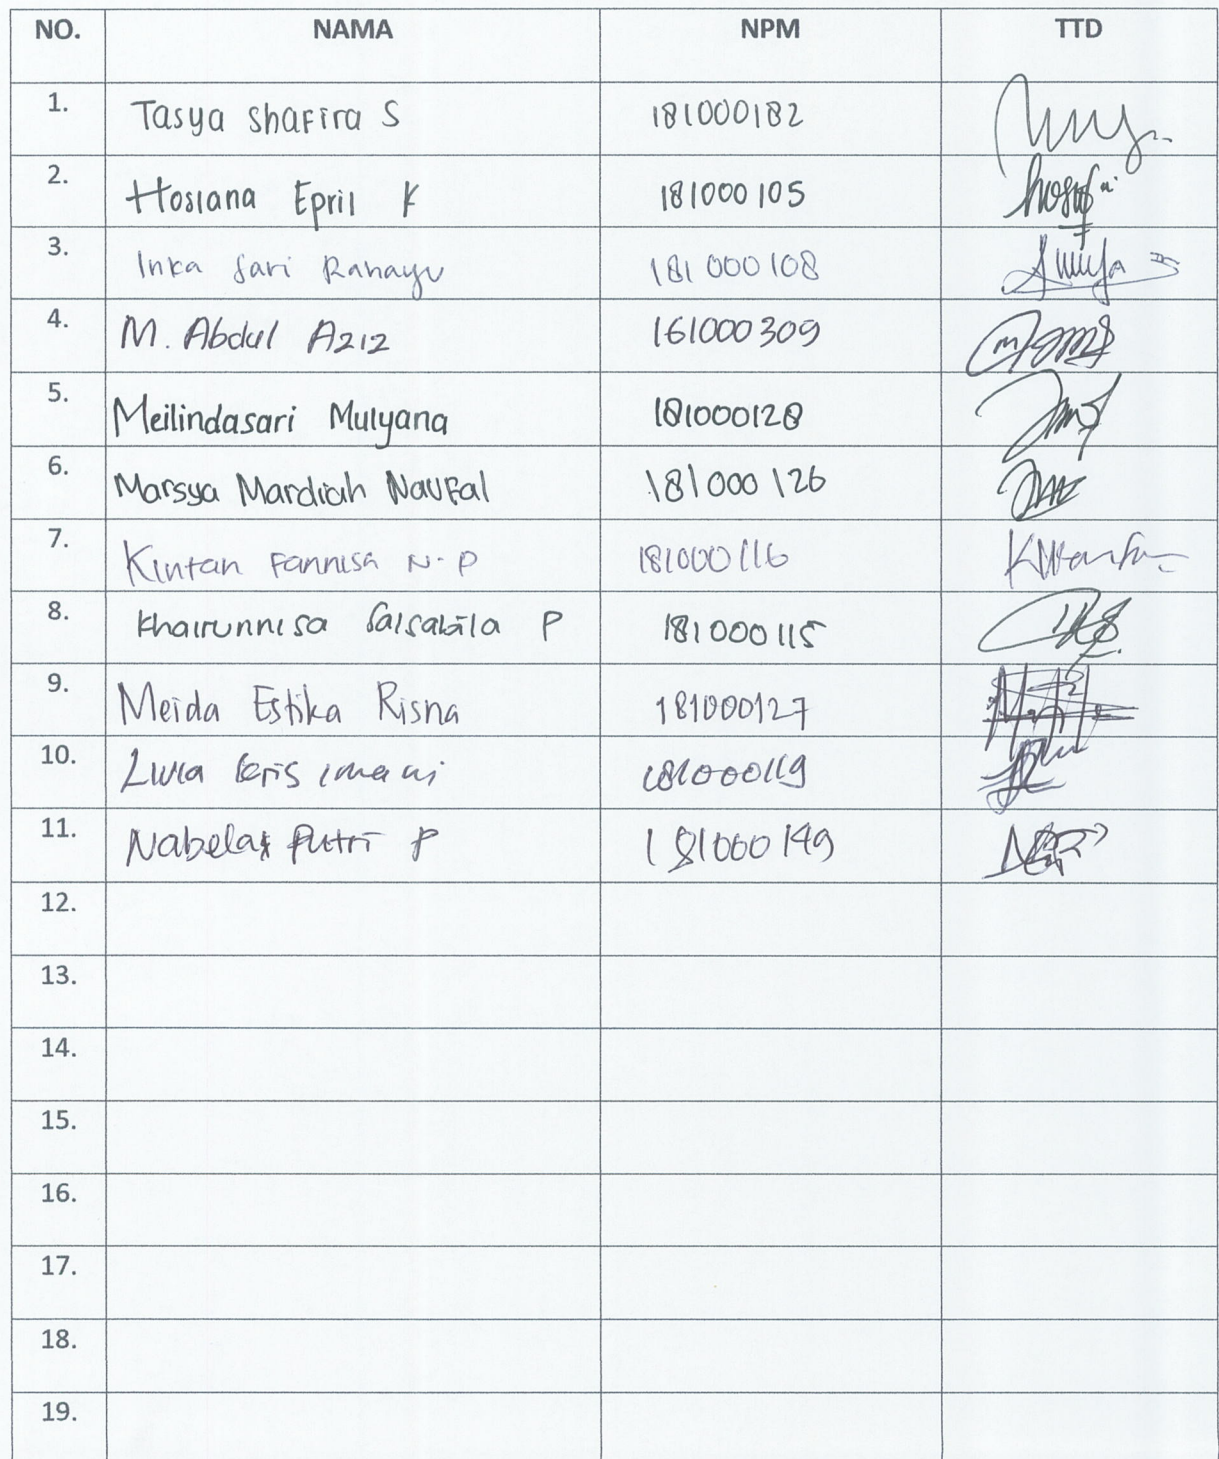 NO. NAMA NPM TTD
1. Tasya Shafira S 181000182
2. Hosiana Epril K 181000105
3. Inka Sari Rahayu 181000108
4. M. Abdul Aziz 161000309
5. Meilindasari Mulyana 181000128
6. Marsya Mardiah Naufal 181000126
7. Kintan Fannisa N.P 181000116
8. Khairunnisa Salsabila P 181000115
9. Meida Estika Risna 181000127
10. 181000119
11. Nabela Putri P 181000149
12.
13.
14.
15.
16.
17.
18.
19.